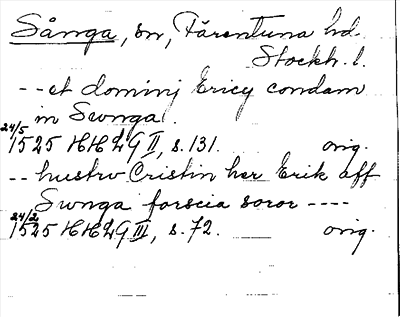 Sånga, sn, Färentuna hd.
Stockh. l.
-- et dominj Ericy condam
in Swnga.
24/5
1525 HHLG II, s. 131. orig.
-- hustrv Cristin her Erik aff
Swnga forscia soror ----
24/2
1525 HHLG III, s. 72. orig.